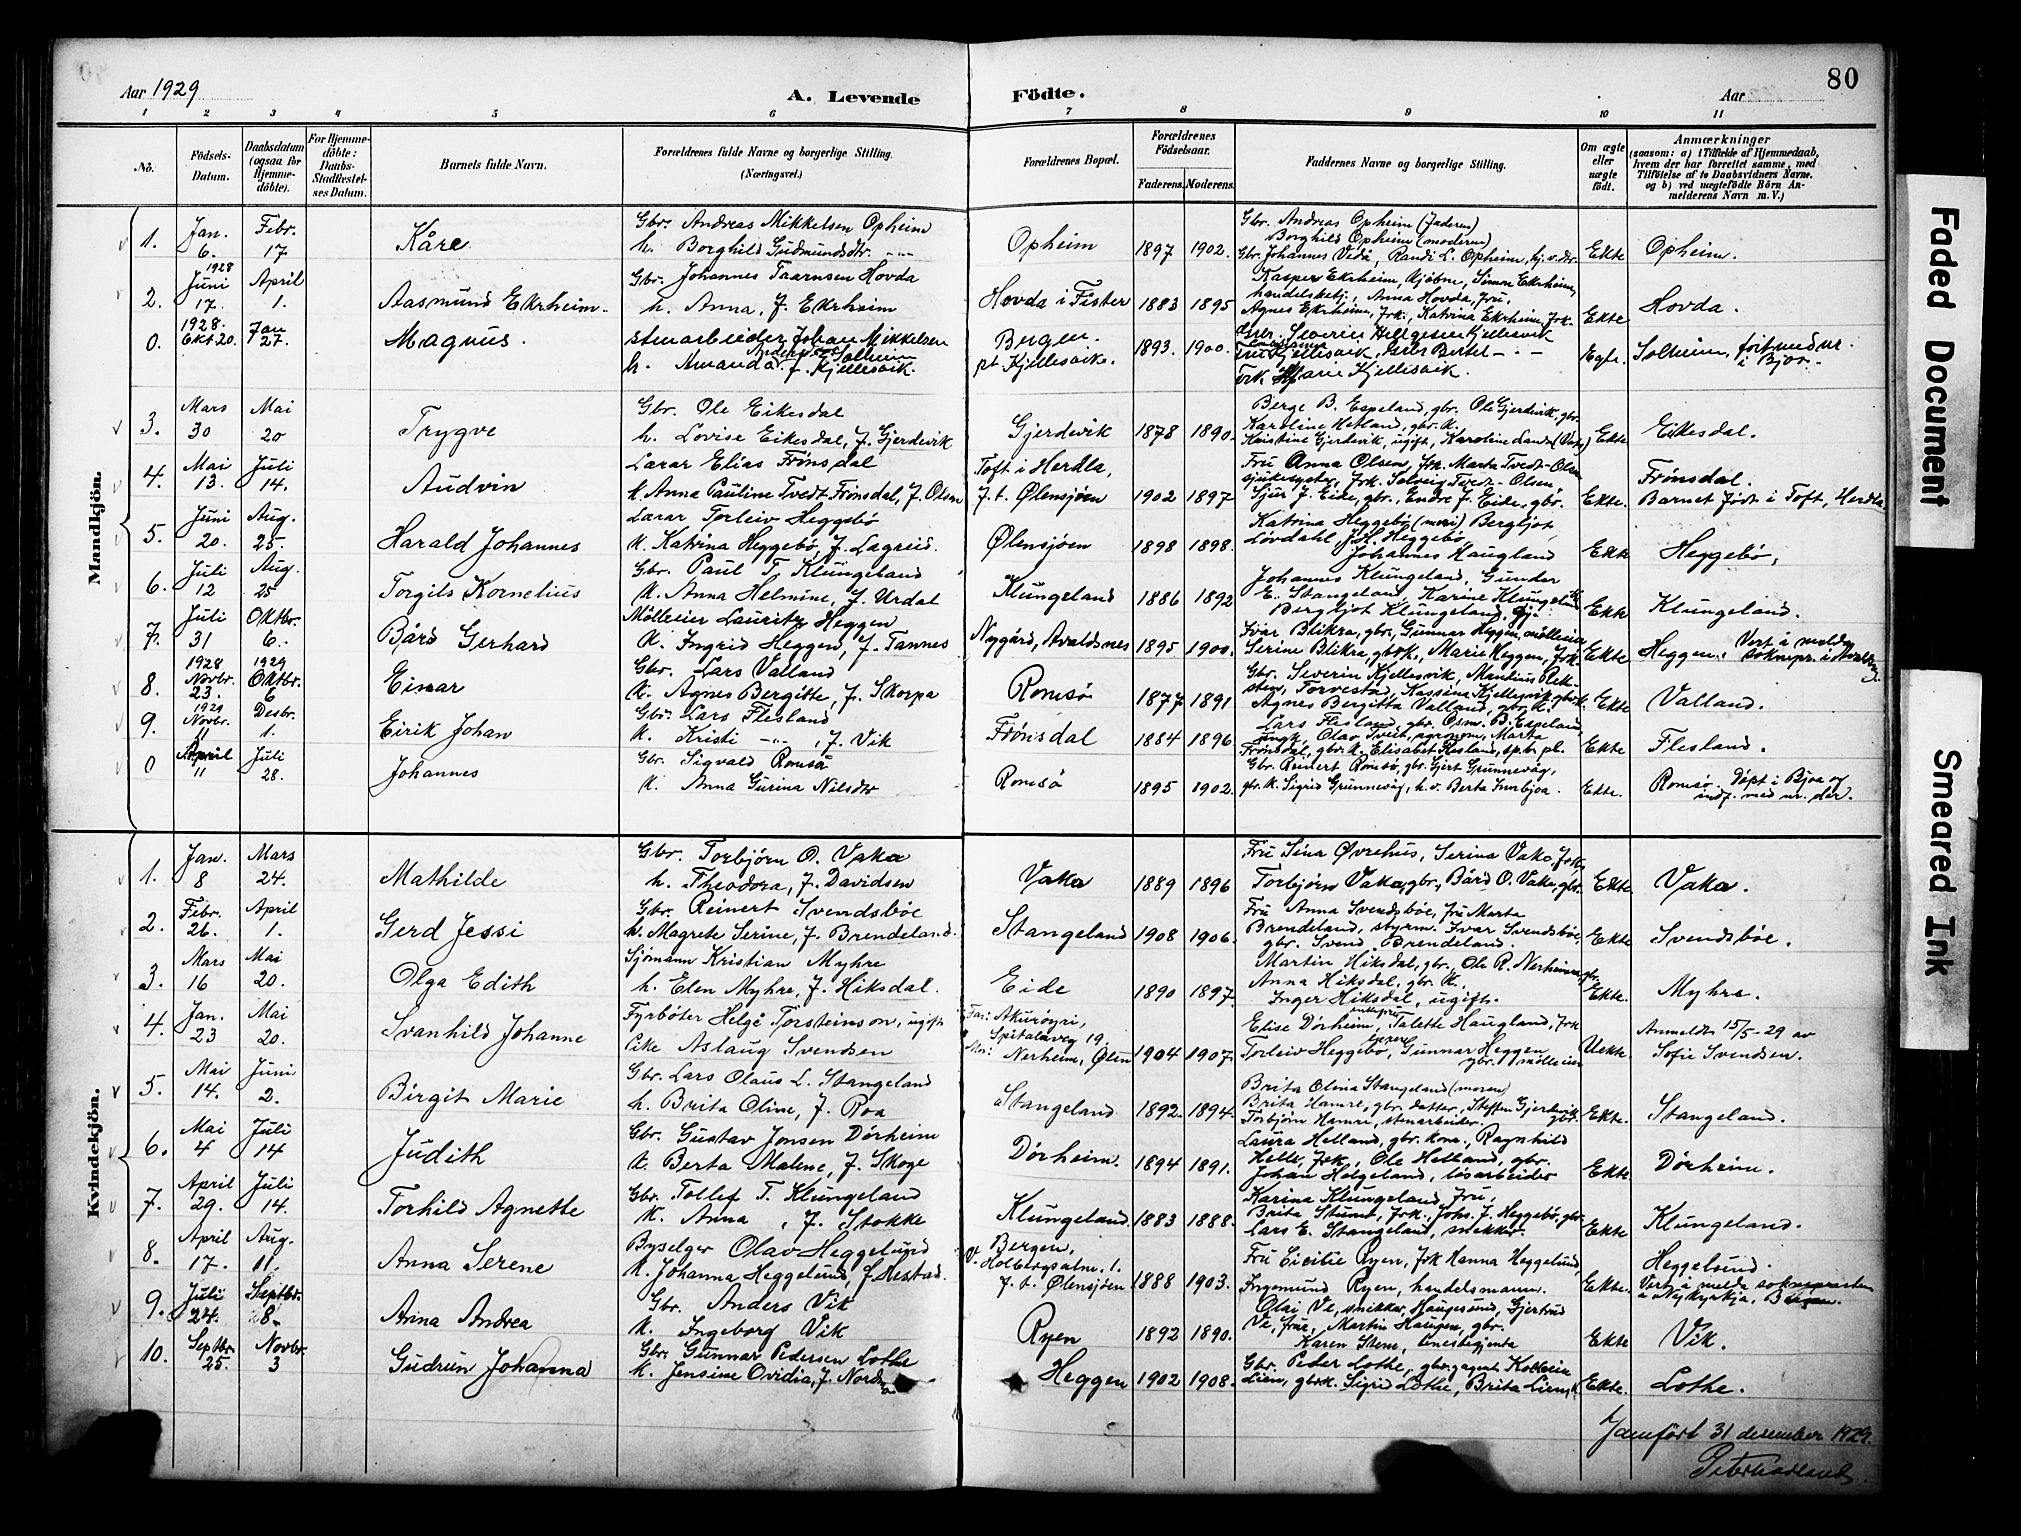 Aar 1929
A. Levende
Födte.
80
Aar
1 2 3 4 5 6 7 8 9 10 11
No.
Födsels-Datum.
Daabsdatum (ogsaa for Hjemme-döbte).
For Hjemme-döbte: Daabs-Stadfæstel-ses Datum.
Barnets fulde Navn.
Forældrenes fulde Navne og borgerlige Stilling.
(Næringsvei.)
Forældrenes Bopæl.
Forældrenes Födselsaar.
Faderens. Moderens.
Faddernes Navne og borgerlige Stilling.
Om ægte eller uægte födt.
Anmærkninger
(saasom: a) i Tilfælde af Hjemmedaab, hvem der har forrettet samme, med Tilföielse af to Daabsvidners Navne. og b) ved uægtefödte Börn An-melderens Navn m. V.)
Mandkjön.
1. Jan. 6. Febr. 17 Kåre Gbr. Andreas Mikkelsen Opheim
h. Borghild Gudmundsdtr. Opheim 1897 1902. Gbr. Andreas Opheim (faderen)
Borghild Opheim (moderen)
Gbr. Johannes Vedø, Randi L. Opheim, Ekte Opheim.
2. 1928 Juni 17. April 1. Aasmund Ekrheim. Gbr. Johannes Taarnsen Hovda
h. Anna, f. Ekrheim Hovda i Fister 1883 1895 Kasper Ekrheim, kjøbm., Simon Ekrheim,
handelsbetj., Anna Hovda, fru,
Agnes Ekrheim, frk., Katrina Ekrheim, frk. Ekte Hovda.
0. 1928. Okt 20. Jan 27. Magnus. stenarbeider Johan Mikkelsen
h. Amanda f. Kjellesvik. Bergen.
pt Kjellesvik. 1893. 1900. Gbr. Severin Helgesen Kjellesvik
Kjellesvik, Gbr Bertel
Frk Marie Kjellesvik. Egte. Solheim,
i Bjoa.
3. Mars 30 Mai 20 Trygve Gbr. Ole Eikesdal
h. Lovise Eikesdal, f. Gjerdevik Gjerdevik 1878 1890. Berge B. Espeland, gbr. Ole Gjerdevik, gbr.
Karoline Hetland, gbr. k.
Kristine Gjerdevik, ugift, Karoline Ekte Eikesdal.
4. Mai 13. Juli 14. Audvin Lærar Elias Frønsdal
k. Anna Pauline Tvedt Frønsdal, f. Olsen Toft i Herdla,
f. t. Ølensjøen 1902 1897 Fru Anna Olsen, frk. Marta Tvedt-Olsen
sjukesyster, frk. Solveig Tvedt-Olsen
Sjur J. Eide, gbr., Endre J. Eide, gbr. Ekte. Frønsdal.
Barnet født i Toft, Herdla
5. Juni 20. Aug. 25. Harald Johannes Lærar Torleiv Heggebø
k. Katrina Heggebø, f. Lagreid. Ølensjøen 1898 1898. Katrina Heggebø (mori) Bergljot
Løvdahl, J.H. Heggebø
Johannes Haugland Ekte Heggebø,
6. Juli 12 Aug. 25 Torgils Kornelius Gbr. Paul T. Klungeland
k. Anna Helmine, f. Urdal Klungeland 1886 1892 Johannes Klungeland, Gunder
E. Stangeland, Karine Klungeland
Bergljot Klungeland, Ekte Klungeland.
7. Juli 31 Oktbr. 6. Bård Gerhard Mölleier Lauritz Heggen
k. Ingrid Heggen, f. Tannes Nygård, Avaldsnes 1895 1900. Ivar Blikra, gbr., Gunnar Heggen, mölleier
Serine Blikra gbrk., Marie Heggen, frk. Ekte Heggen. Vert å melda
soknepr. i Avaldsnes
8. 1928 Novbr. 23. 1929 Oktbr. 6 Einar Gbr. Lars Valland
k. Agnes Bergitte, f. Skorpa Romsö 1877 1891 Gbr. Severin Kjellesvik,
Torvestad, Kassina Kjellesvik gbrk.
Agnes Bergitta Valland, gbr. k. Ekte Valland.
9. 1929 Novbr. 11 Desbr. 1. Eirik Johan Gbr. Lars Flesland
k. Kristi, f. Vik Frønsdal 1884 1896 Lars Flesland, gbr. Osm. B. Espeland,
ungk. Olav Tveit, agronom, Marta
Frønsdal, gbr. k. Elisabet Flesland, sp.b. pl. Ekte Flesland.
0 April 11 Juli 28. Johannes Gbr. Sigvald Romsø
k. Anna Gurina Nilsdtr Romsø 1895 1902. Gbr. Reinert Romsø, gbr. Gjert Grunnevåg,
gbr. k. Sigrid Grunnevåg, h. v. Berta Innbjoa. Ekte. Romsø. Døpt i Bjoa og
indf. med nr. der.
Kvindekjön.
1. Jan. 8 Mars 24. Mathilde Gbr. Torbjørn O. Vaka
h. Theodora, f. Davidsen Vaka 1889 1896 Fru Sina Øvrehus, Serina Vaka, frk,
Torbjørn Vaka, gbr., Bård O. Vaka, gbr. Ekte Vaka.
2. Febr. 26. April 1. Gerd Jessi Gbr. Reinert Svendsbøe
h. Magrete Serine, f. Brendeland. Stangeland 1908 1906. Fru Anna Svendsbøe, fru Marta
Brendeland, styrm. Ivar Svendsbøe,
gbr. Svend Brendeland. Ekte Svendsbøe.
3. Mars 16 Mai 20. Olga Edith Sjömann Kristian Myhre
h. Elen Myhre, f. Hiksdal. Eide 1890 1897. Martin Hiksdal, gbr., Ole R. Nerheim, gbr.
Anna Hiksdal, gbr. k.,
Inger Hiksdal, ugift. Ekte. Myhre.
4. Jan. 23 Mai 20. Svanhild Johanne Fyrbøter Helge Torsteinson, ugift
Pike Aslaug Svendsen Far: Akurøyri,
Spitalaveg 19,
Mor: Nerheim, Ølen 1904 1907. Elise Dørheim, Talette Haugland, frk
Torleiv Heggebø, Gunnar Heggen
gbr. mölleier Uekte. Anmeldt 15/5-29 av
Sofie Svendsen.
5. Mai 14. Juni 2. Birgit Marie Gbr. Lars Olaus L. Stangeland
h. Brita Oline, f. Roa Stangeland 1892. 1894. Brita Olina Stangeland (moren)
Brita Hamre, gbr. datter, Steffen Gjerdevik gbr.
Torbjørn Hamre, stenarbeider. Ekte. Stangeland.
6. Mai 4 Juli 14 Judith Gbr. Gustav Jonsen Dørheim
k. Berta Malene, f. Skoge Dørheim. 1894 1891. Laura Helland, gbr. kona., Ragnhild
Helle, frk., Ole Helland, gbr.
Johan Helgeland, løsarbeider Ekte Dørheim.
7. April 29. Juli 14. Torhild Agnette Gbr. Tollef T. Klungeland
k. Anna, f. Stokke Klungeland. 1883 1888. Karina Klungeland, fru,
Brita Stumo, frk. Johs. J. Heggebø, gbr.
Lars E. Stangeland, snekker. Ekte Klungeland.
8. April 17. Aug. 11. Anna Serene Byselger Olav Heggelund
k. Johanna Heggelund, f. Nestad. Bergen,
V. Holbergsalm. 1.
f. t. Ølensjøen 1888 1903. Fru Cicilie Ryen, frk Hanna Heggelund,
Ingemund Ryen, handelsmann. Ekte. Heggelund.
Vert å melda soknepresten
i Nykyrkja, Bergen.
9. Juli 24. Septbr. 8. Anna Andrea Gbr. Anders Vik
k. Ingeborg Vik Ryen 1892 1890. Olai Ve, snikkar, Haugesund, Gjertrud
Ve, frue, Martin Haugen, gbr.
Karen Stene, Ekte Vik.
10. Septbr. 25. Novbr. 3 Gudrun Johanna Gbr. Gunnar Pedersen Lothe
k. Jensine Ovidia, f. Heggen 1902 1908. Gbr. Peder Lothe, gbr. agent
Lien, gbrk. Sigrid Lothe, Brita Lien, Ekte. Lothe.
Jamført 31 desember 1929.
Faded Document
Smeared Ink